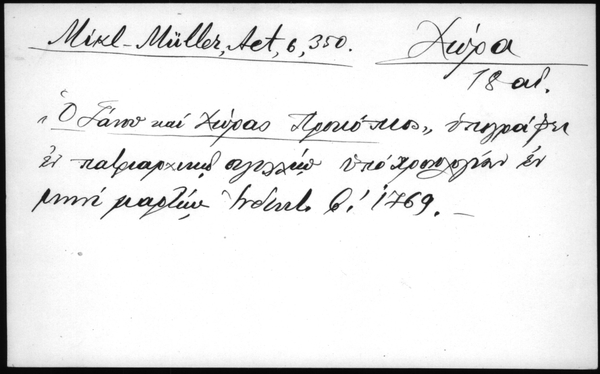 Mikl-Müller, Act, 6, 350.
Χώρα
18 αι.
"Ὁ Γάνου καὶ Χώρας Προκόπιος", ὑπογράφει
ἐν πατριαρχικῷ σιγιλλίῳ ὑπὸ χρονολογίαν ἐν
μηνὶ μαρτίῳ Ἰνδικτ. β! 1769. –